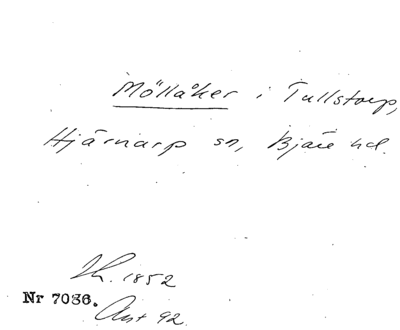 Möllåker i Tullstorp,
Hjärnarp sn, Bjäre hd.
Lh. 1852
Nr 7036.
Avt 92.